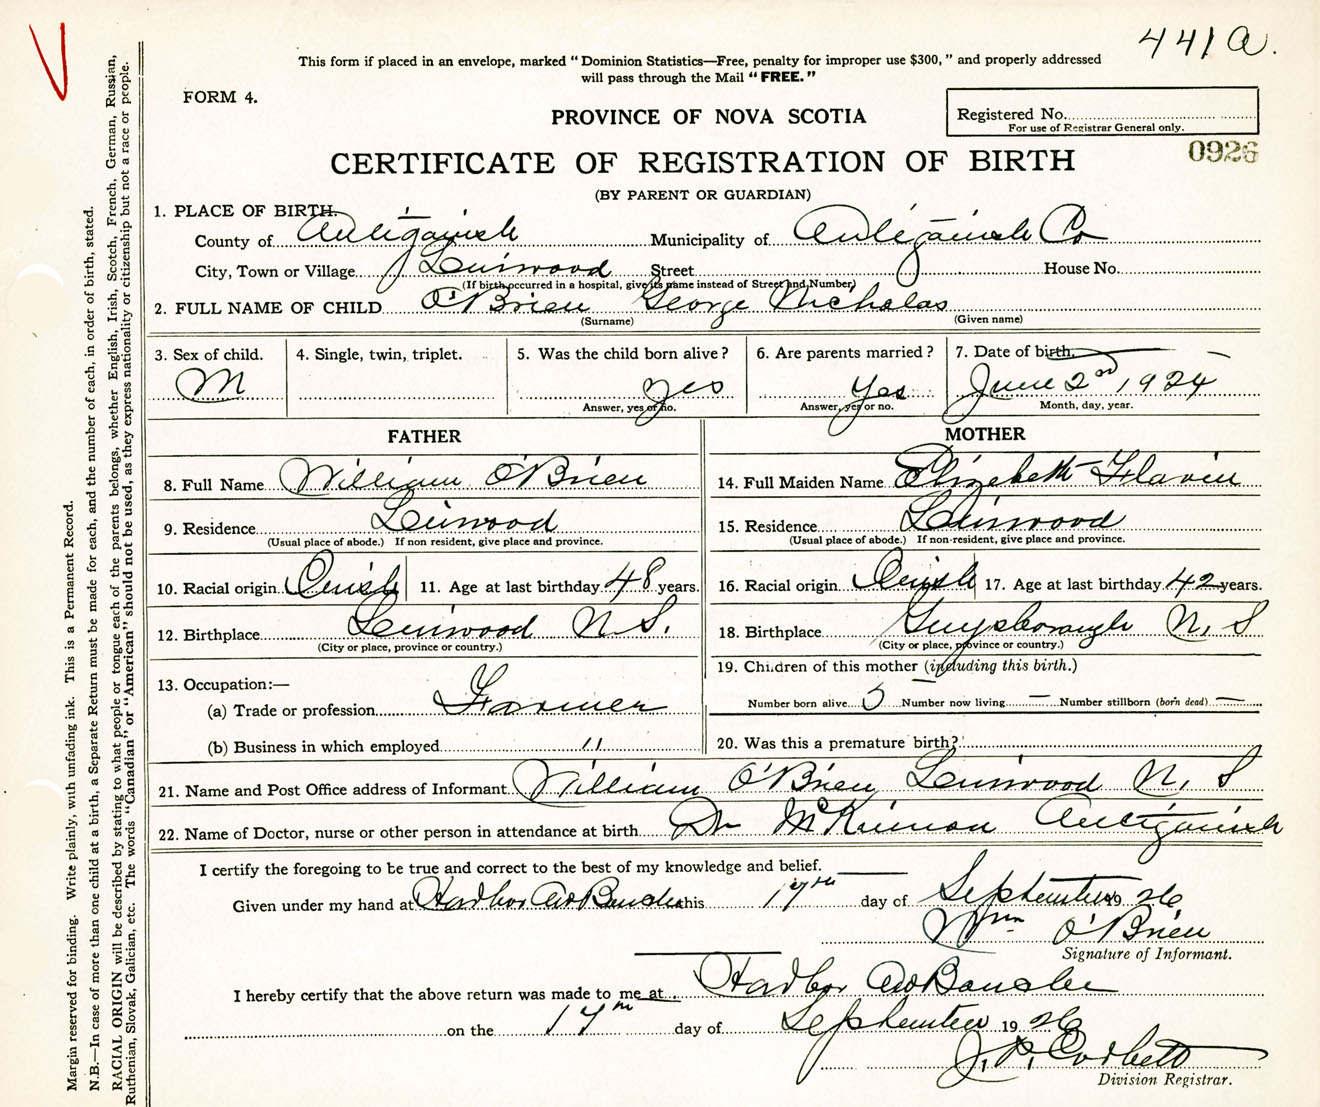 441 a.
This form if placed in an envelope, marked "Dominion Statistics—Free, penalty for improper use $300," and properly addressed
will pass through the Mail "FREE."
FORM 4.
PROVINCE OF NOVA SCOTIA
Registered No.
For use of Registrar General only.
0926
CERTIFICATE OF REGISTRATION OF BIRTH
(BY PARENT OR GUARDIAN)
1. PLACE OF BIRTH.
County of Antigonish Municipality of Antigonish Co
City, Town or Village Linwood Street House No.
(If birth occurred in a hospital, give its name instead of Street and Number)
2. FULL NAME OF CHILD O'Brien George Nicholas
(Surname) (Given name)
3. Sex of child. 4. Single, twin, triplet. 5. Was the child born alive? 6. Are parents married? 7. Date of birth.
M yes Yes June 2nd, 1924
Answer, yes or no. Answer, yes or no. Month, day, year.
FATHER MOTHER
8. Full Name William O'Brien 14. Full Maiden Name Elizabeth Flavin
9. Residence Linwood 15. Residence Linwood
(Usual place of abode.) If non resident, give place and province. (Usual place of abode.) If non-resident, give place and province.
10. Racial origin Irish 11. Age at last birthday 48 years. 16. Racial origin Irish 17. Age at last birthday 42 years.
12. Birthplace Linwood N.S. 18. Birthplace Guysborough N.S
(City or place, province or country.) (City or place, province or country.)
19. Children of this mother (including this birth.)
13. Occupation:—
(a) Trade or profession Farmer
Number born alive 5 Number now living — Number stillborn (born dead) —
(b) Business in which employed " 20. Was this a premature birth?
21. Name and Post Office address of Informant William O'Brien Linwood N.S
22. Name of Doctor, nurse or other person in attendance at birth Dr McKinnon Antigonish
I certify the foregoing to be true and correct to the best of my knowledge and belief.
Given under my hand at Harbor Au Bouche this 17th day of September 1926
Wm O'Brien
Signature of Informant.
I hereby certify that the above return was made to me at Harbor Au Bouche
on the 17th day of September 1926
J. P. Corbett
Division Registrar.
Margin reserved for binding. Write plainly, with unfading ink. This is a Permanent Record.
N.B.—In case of more than one child at a birth, a Separate Return must be made for each, and the number of each, in order of birth, stated.
RACIAL ORIGIN will be described by stating to what people or tongue each of the parents belongs, whether English, Irish, Scotch, French, German, Russian,
Ruthenian, Slovak, Galician, etc. The words "Canadian" or "American" should not be used, as they express nationality or citizenship but not a race or people.